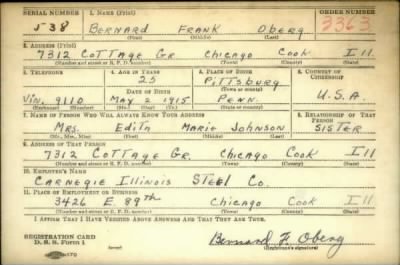 SERIAL NUMBER 1. NAME (Print) ORDER NUMBER
538 BERNARD FRANK OBERG 3363
(First) (Middle) (Last)
2. ADDRESS (Print)
7312 COTTAGE GR. Chicago Cook Ill
(Number and street or R. F. D. number) (Town) (County) (State)
3. TELEPHONE 4. AGE IN YEARS 5. PLACE OF BIRTH 6. COUNTRY OF CITIZENSHIP
25 PITTSBURG
DATE OF BIRTH (Town or county)
Vin. 9110 MAY 2 1915 PENN. U.S.A.
(Exchange) (Number) (Mo.) (Day) (Yr.) (State or country)
7. NAME OF PERSON WHO WILL ALWAYS KNOW YOUR ADDRESS 8. RELATIONSHIP OF THAT PERSON
MRS. Edith MARIE JOHNSON SISTER
(Mr., Mrs., Miss) (First) (Middle) (Last)
9. ADDRESS OF THAT PERSON
7312 COTTAGE GR. Chicago Cook Ill
(Number and street or R. F. D. number) (Town) (County) (State)
10. EMPLOYER'S NAME
CARNEGIE ILLINOIS STEEL CO.
11. PLACE OF EMPLOYMENT OR BUSINESS
3426 E. 89th Chicago Cook Ill
(Number and street or R. F. D. number) (Town) (County) (State)
I AFFIRM THAT I HAVE VERIFIED ABOVE ANSWERS AND THAT THEY ARE TRUE.
REGISTRATION CARD
D. S. S. Form 1 Bernard F. Oberg
(Registrant's signature)